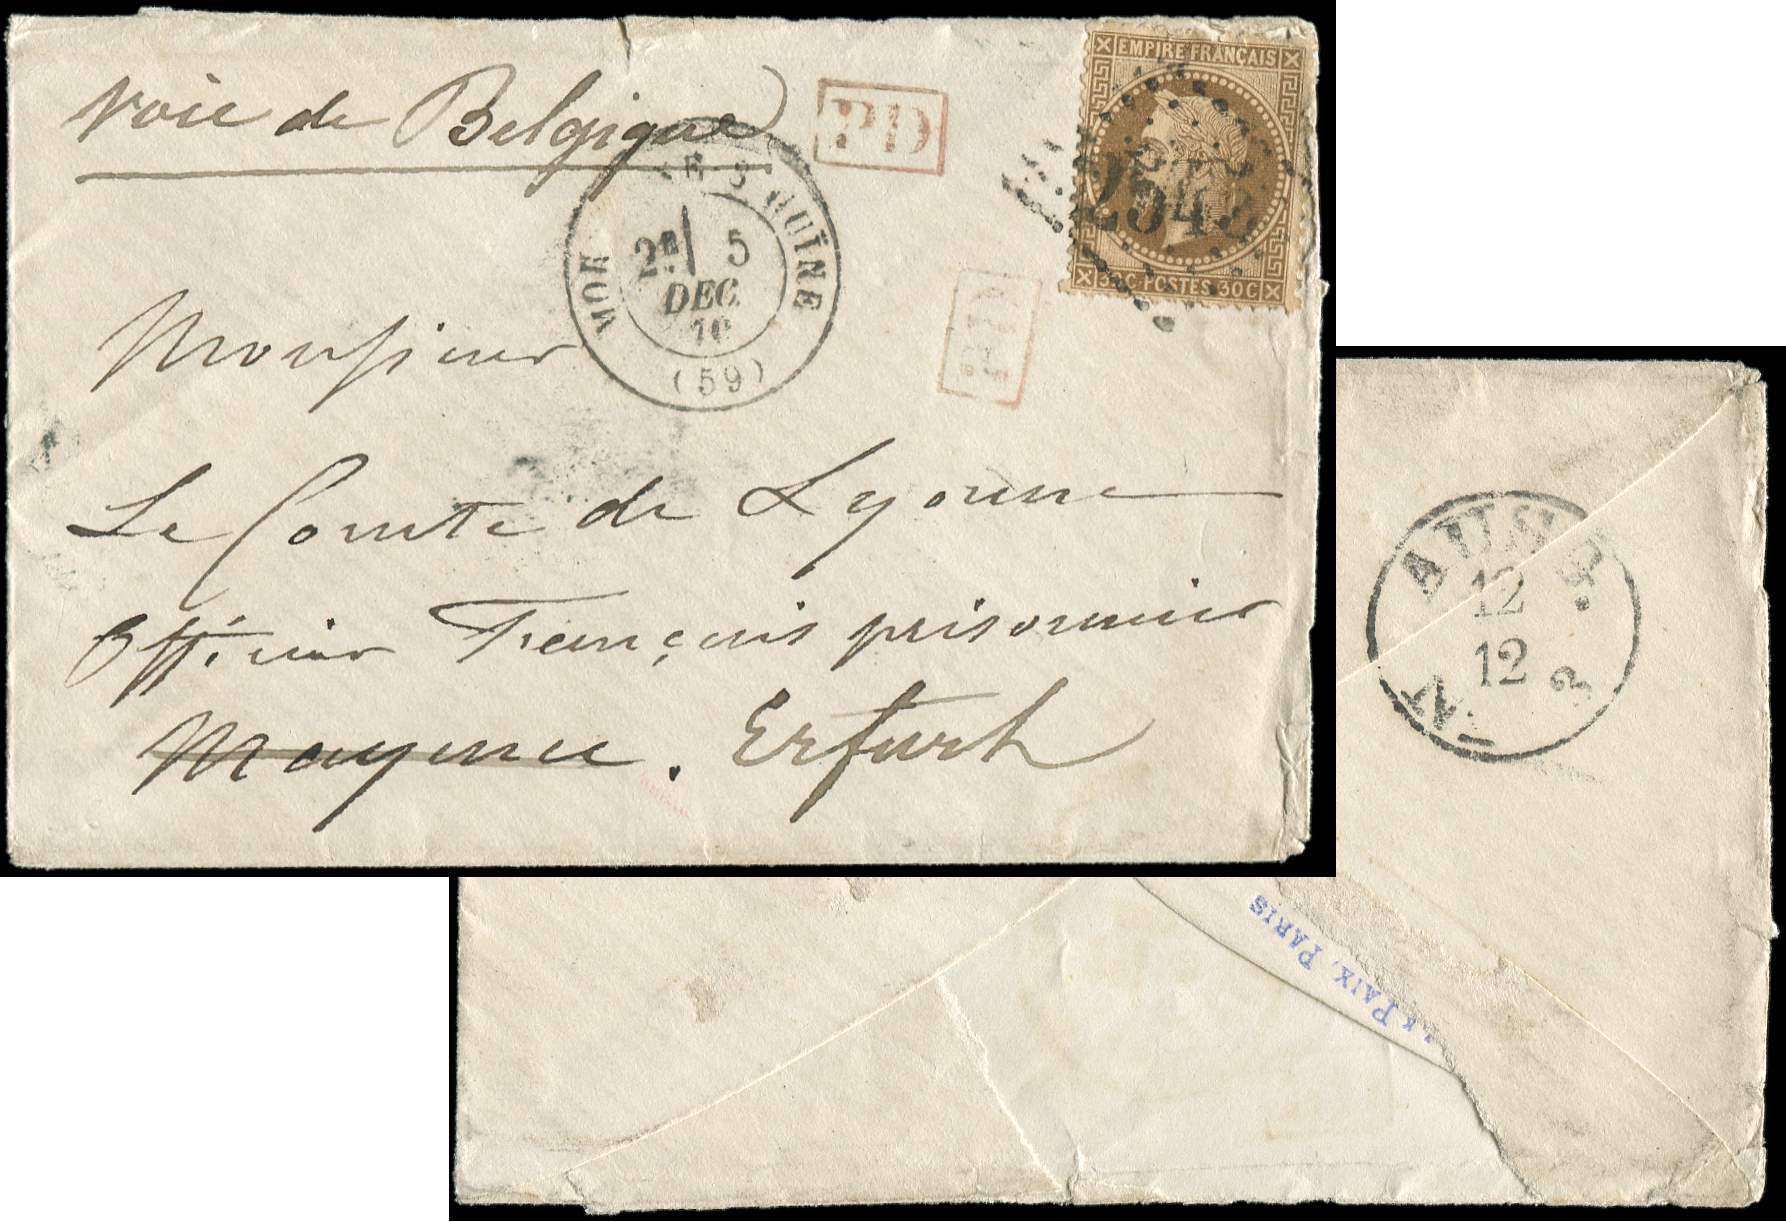 Voie de Belgique
PD
EMPIRE FRANÇAIS
30C POSTES 30C
2E
5
DEC
70
(59)
PD
Monsieur
Le Comte de Lyonne
Officier Français prisonnier
Mayence. Erfurth
AUSG.
12
12
N 3
PAIX, PARIS